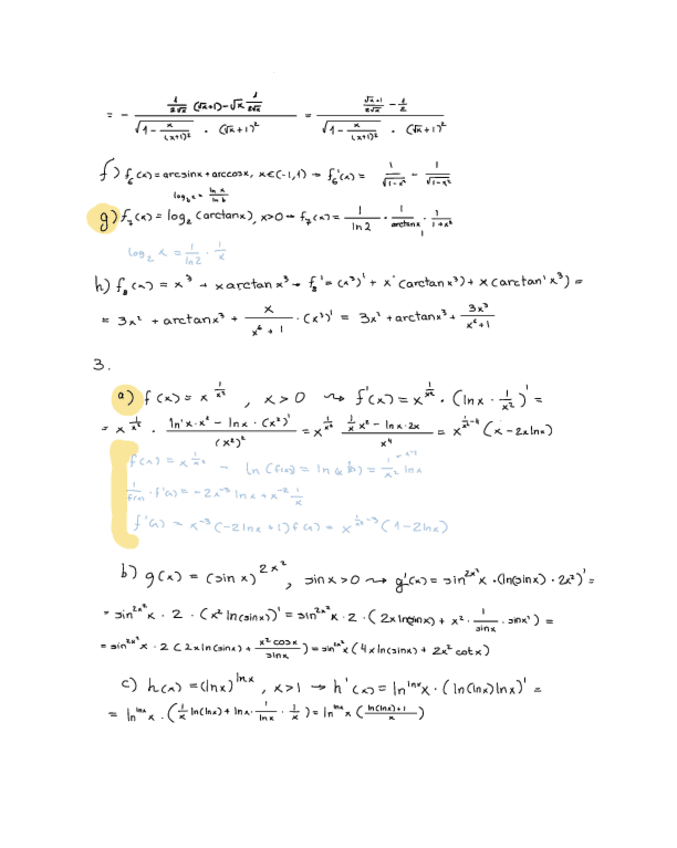 = - (1/(2√x) (√x+1) - √x 1/(2√x)) / (√(1 - x/(x+1)²) · (√x+1)²) = ((√x+1)/(2√x) - 1/2) / (√(1 - x/(x+1)²) · (√x+1)²)
f) f₆(x) = arcsinx + arccosx, x∈(-1,1) → f₆'(x) = 1/√(1-x²) - 1/√(1-x²)
log_b x = ln x / ln b
g) f₇(x) = log₂(arctanx), x>0 → f₇(x) = 1/ln2 · 1/arctanx · 1/(1+x²)
log₂ x = 1/ln2 · 1/x
h) f₈(x) = x³ + xarctan x³ → f₈' = (x³)' + x'(arctan x³) + x(arctan' x³) =
= 3x² + arctanx³ + x/(x⁶+1) · (x³)' = 3x² + arctanx³ + 3x³/(x⁶+1)
3.
a) f(x) = x^(1/x²), x>0 ⇝ f'(x) = x^(1/x²) · (lnx · 1/x²)' =
= x^(1/x²) · (ln'x·x² - lnx·(x²)')/(x²)² = x^(1/x²) (1/x x² - lnx·2x)/x⁴ = x^(1/x²-4) (x - 2xlnx)
f(x) = x^(1/x²) - ln(f(x)) = ln(x^(1/x²)) = 1/x² lnx
1/f(x) · f'(x) = -2x⁻³ lnx + x⁻² 1/x
f'(x) = x⁻³(-2lnx+1)f(x) = x^(1/x²-3) (1-2lnx)
b) g(x) = (sin x)^(2x²), sinx>0 ⇝ g'(x) = sin^(2x²)x · (ln(sinx) · 2x²)' =
= sin^(2x²)x · 2 · (x² ln(sinx))' = sin^(2x²)x · 2 · (2x ln(sinx) + x² · 1/sinx · sinx') =
= sin^(2x²)x · 2(2xln(sinx) + x²cosx/sinx) = sin^(2x²)x (4xln(sinx) + 2x² cotx)
c) h(x) = (lnx)^(lnx), x>1 → h'(x) = ln^(lnx)x · (ln(lnx)lnx)' =
= ln^(lnx)x · (1/x ln(lnx) + lnx · 1/lnx · 1/x) = ln^(lnx)x ((ln(lnx)+1)/x)